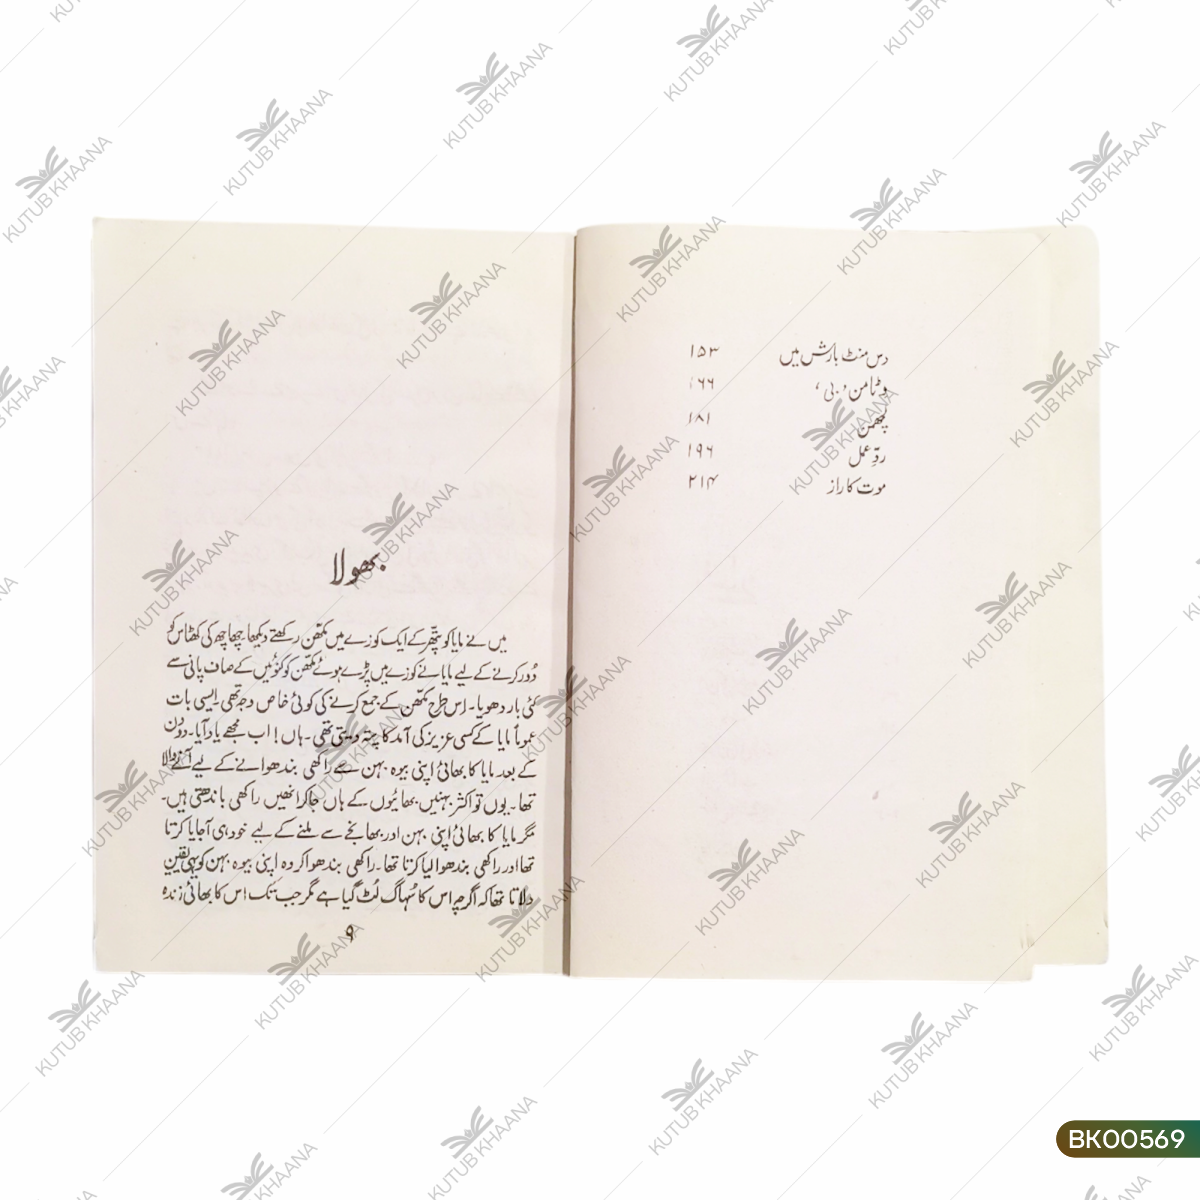 دس منٹ بارش میں ۱۵۳
وٹامن ’بی‘ ۱۶۶
لچھمن ۱۸۱
ردِّ عمل ۱۹۶
موت کا راز ۲۱۴
بھولا
میں نے مایا کو پتھر کے ایک کوزے میں مکھن رکھتے دیکھا۔ چھاچھ کی کھٹاس کو
دُور کرنے کے لیے مایا نے کوزے میں پڑے ہوئے مکھن کو کنوئیں کے صاف پانی سے
کئی بار دھویا۔ اس طرح مکھن کے جمع کرنے کی کوئی خاص وجہ تھی۔ ایسی بات
عموماً مایا کے کسی عزیز کی آمد کا پتہ دیتی تھی۔ ہاں! اب مجھے یاد آیا۔ دو دن
کے بعد مایا کا بھائی اپنی بیوہ بہن سے راکھی بندھوانے کے لیے آنے والا
تھا۔ یوں تو اکثر بہنیں بھائیوں کے ہاں جا کر انھیں راکھی باندھتی ہیں۔
مگر مایا کا بھائی اپنی بہن اور بھانجے سے ملنے کے لیے خود ہی آ جایا کرتا
تھا اور راکھی بندھوا لیا کرتا تھا۔ راکھی بندھوا کر وہ اپنی بیوہ بہن کو یہی یقین
دلاتا تھا کہ اگرچہ اس کا سُہاگ لُٹ گیا ہے مگر جب تک اس کا بھائی زندہ
۹
KUTUB KHAANA
BK00569